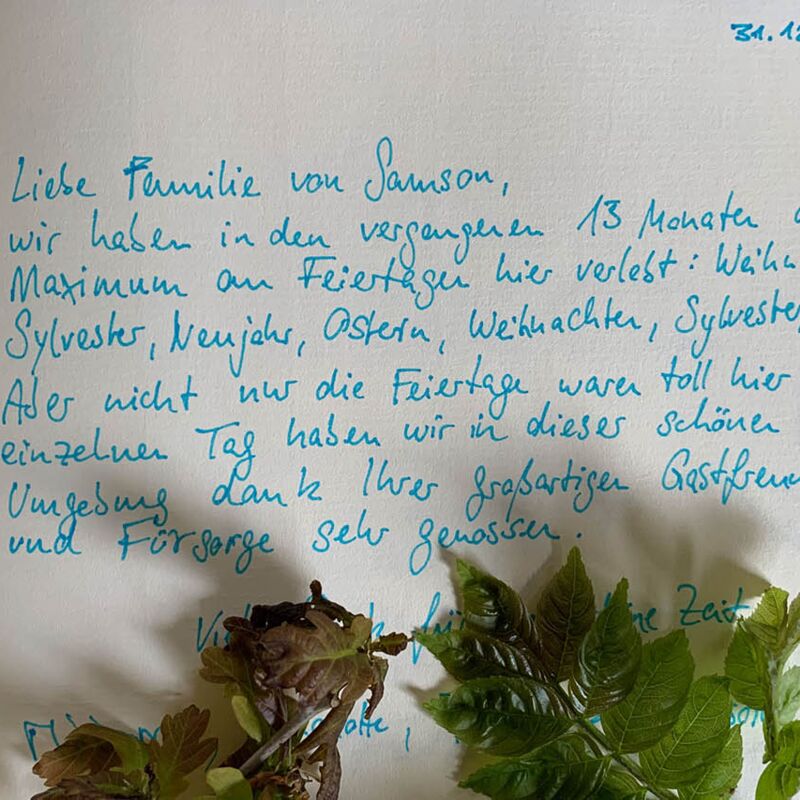 31.12
Liebe Familie von Samson,
wir haben in den vergangenen 13 Monaten
Maximum an Feiertagen hier verlebt: Weihn
Sylvester, Neujahr, Ostern, Weihnachten, Sylvester,
Aber nicht nur die Feiertage waren toll hier
einzelnen Tag haben wir in dieser schönen
Umgebung dank Ihrer großartigen Gastfreun
und Fürsorge sehr genossen.
Zeit